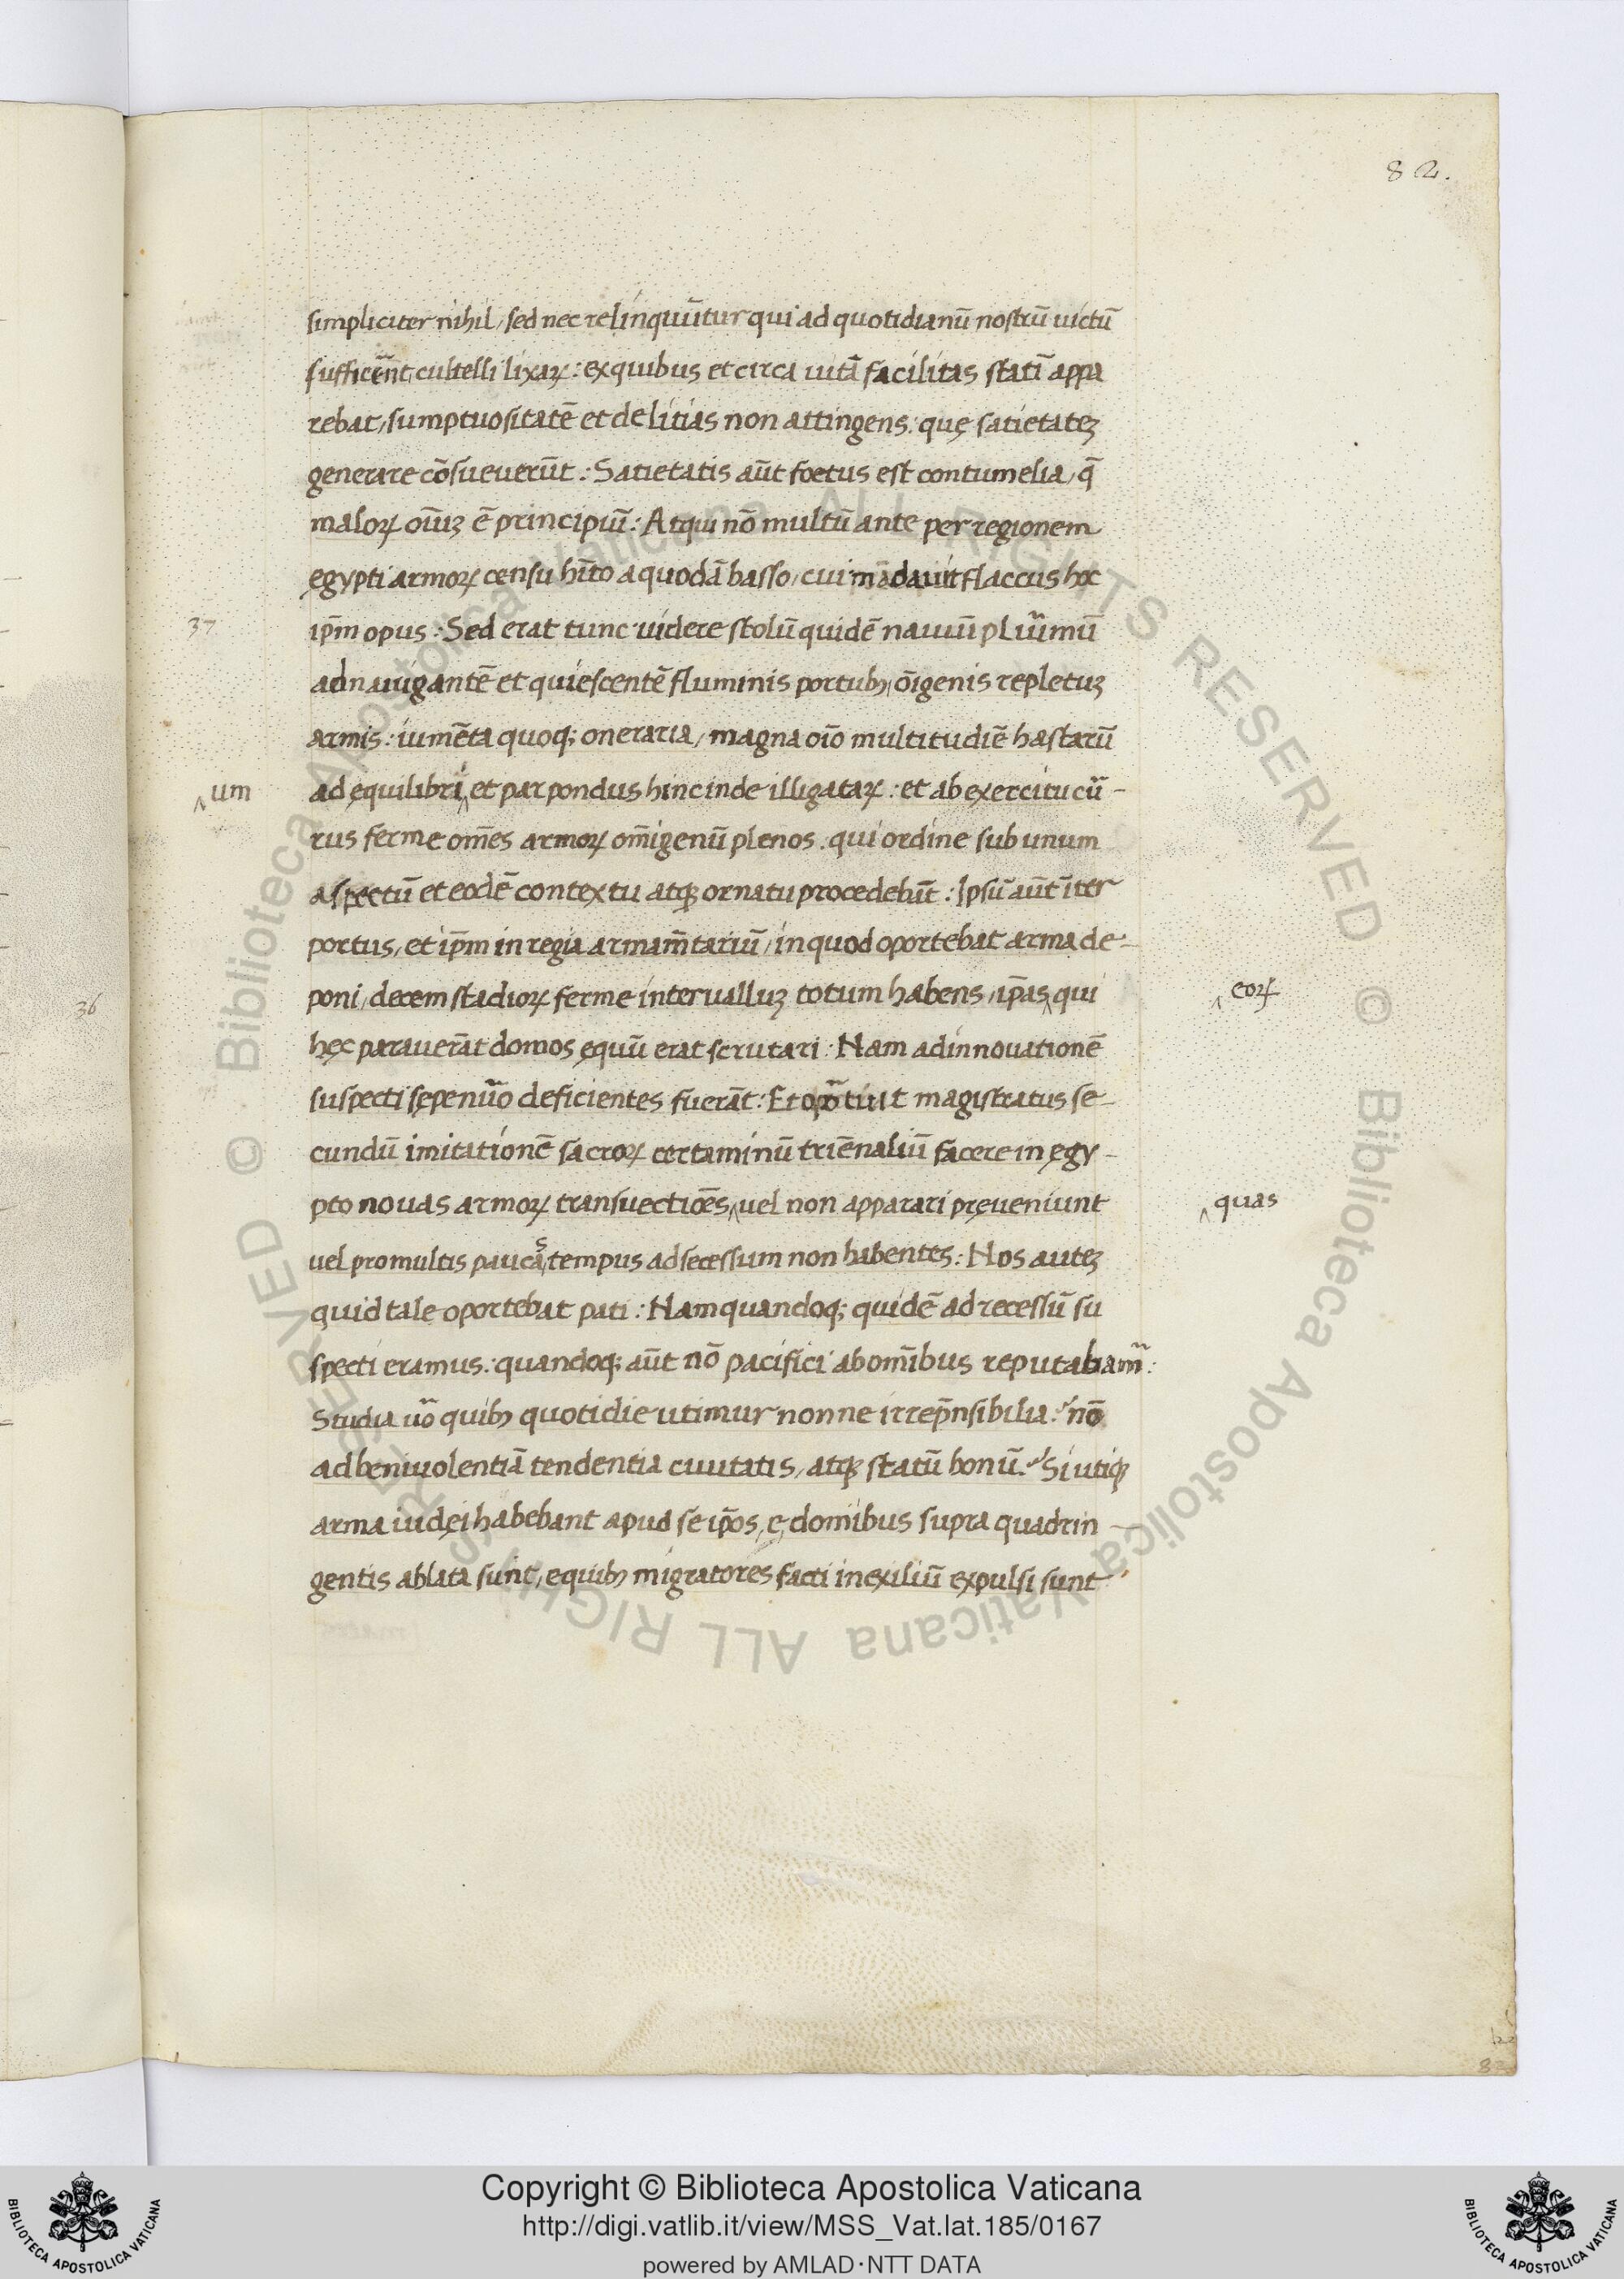 82.
simpliciter nihil, sed nec relinquūtur qui ad quotidianū nostrū uictū
sufficerēnt, cultelli lixaꝝ: ex quibus et circa uitā facilitas statī appa
rebat, sumptuositatē et delitias non attingens: quę satietateꝫ
generare cōsueuerūt: Satietatis aūt foetus est contumelia, q̄
maloꝝ oīuꝫ ē principiū: Atqui nō multū ante per regionem
ęgypti armoꝝ censu hīto a quodā basso, cui mādauit flaccus hoc
37
ip̄m opus: Sed erat tunc uidere stolū quidē nauiū pluīmū
adnauigantē et quiescentē fluminis portubꝫ, oīgenis repletuꝫ
armis: iumēta quoqꝫ oneraria, magna oīo multitudiē hastarū
‸um
ad ęquilibri‸ et par pondus hinc inde illigataꝝ: et ab exercitu cū-
rus ferme om̄es armoꝝ om̄igenū plenos: qui ordine sub unum
aspectū et eodē contextu atqꝫ ornatu procedebāt: Ipsū aūt iter
portus, et ip̄m in regia armam̄tariū, in quod oportebat arma de-
poni, decem stadioꝝ ferme interualluꝫ totum habens, ip̄as‸ qui
‸eoꝝ
hęc parauerāt domos ęquū erat scrutari: Nam ad innouationē
suspecti sępenūo deficientes fuerāt: Et oportuit magistratus se-
cundū imitationē sacroꝝ certaminū triēnaliū facere in ęgy-
pto nouas armoꝝ transuectiōes‸ uel non apparari pręueniunt
‸quas
uel pro multis paucas, tempus ad secessum non habentes: Nos auteꝫ
quid tale oportebat pati: Nam quandoqꝫ quidē ad recessū su
specti eramus: quandoqꝫ aūt nō pacifici ab om̄ibus reputabamr̄:
Studia uō quibꝫ quotidie utimur nonne irrep̄nsibilia? nō
ad beniuolentiā tendentia ciuitatis, atqꝫ statū bonū? Si utiqꝫ
arma iudęi habebant apud se ip̄os, e domibus supra quadrin-
gentis ablata sunt, e quibꝫ migratores facti in exiliū expulsi sunt
36
Copyright © Biblioteca Apostolica Vaticana
http://digi.vatlib.it/view/MSS_Vat.lat.185/0167
powered by AMLAD·NTT DATA
BIBLIOTECA APOSTOLICA VATICANA
BIBLIOTECA APOSTOLICA VATICANA
© Biblioteca Apostolica Vaticana ALL RIGHTS RESERVED © Biblioteca Apostolica Vaticana ALL RIGHTS RESERVED